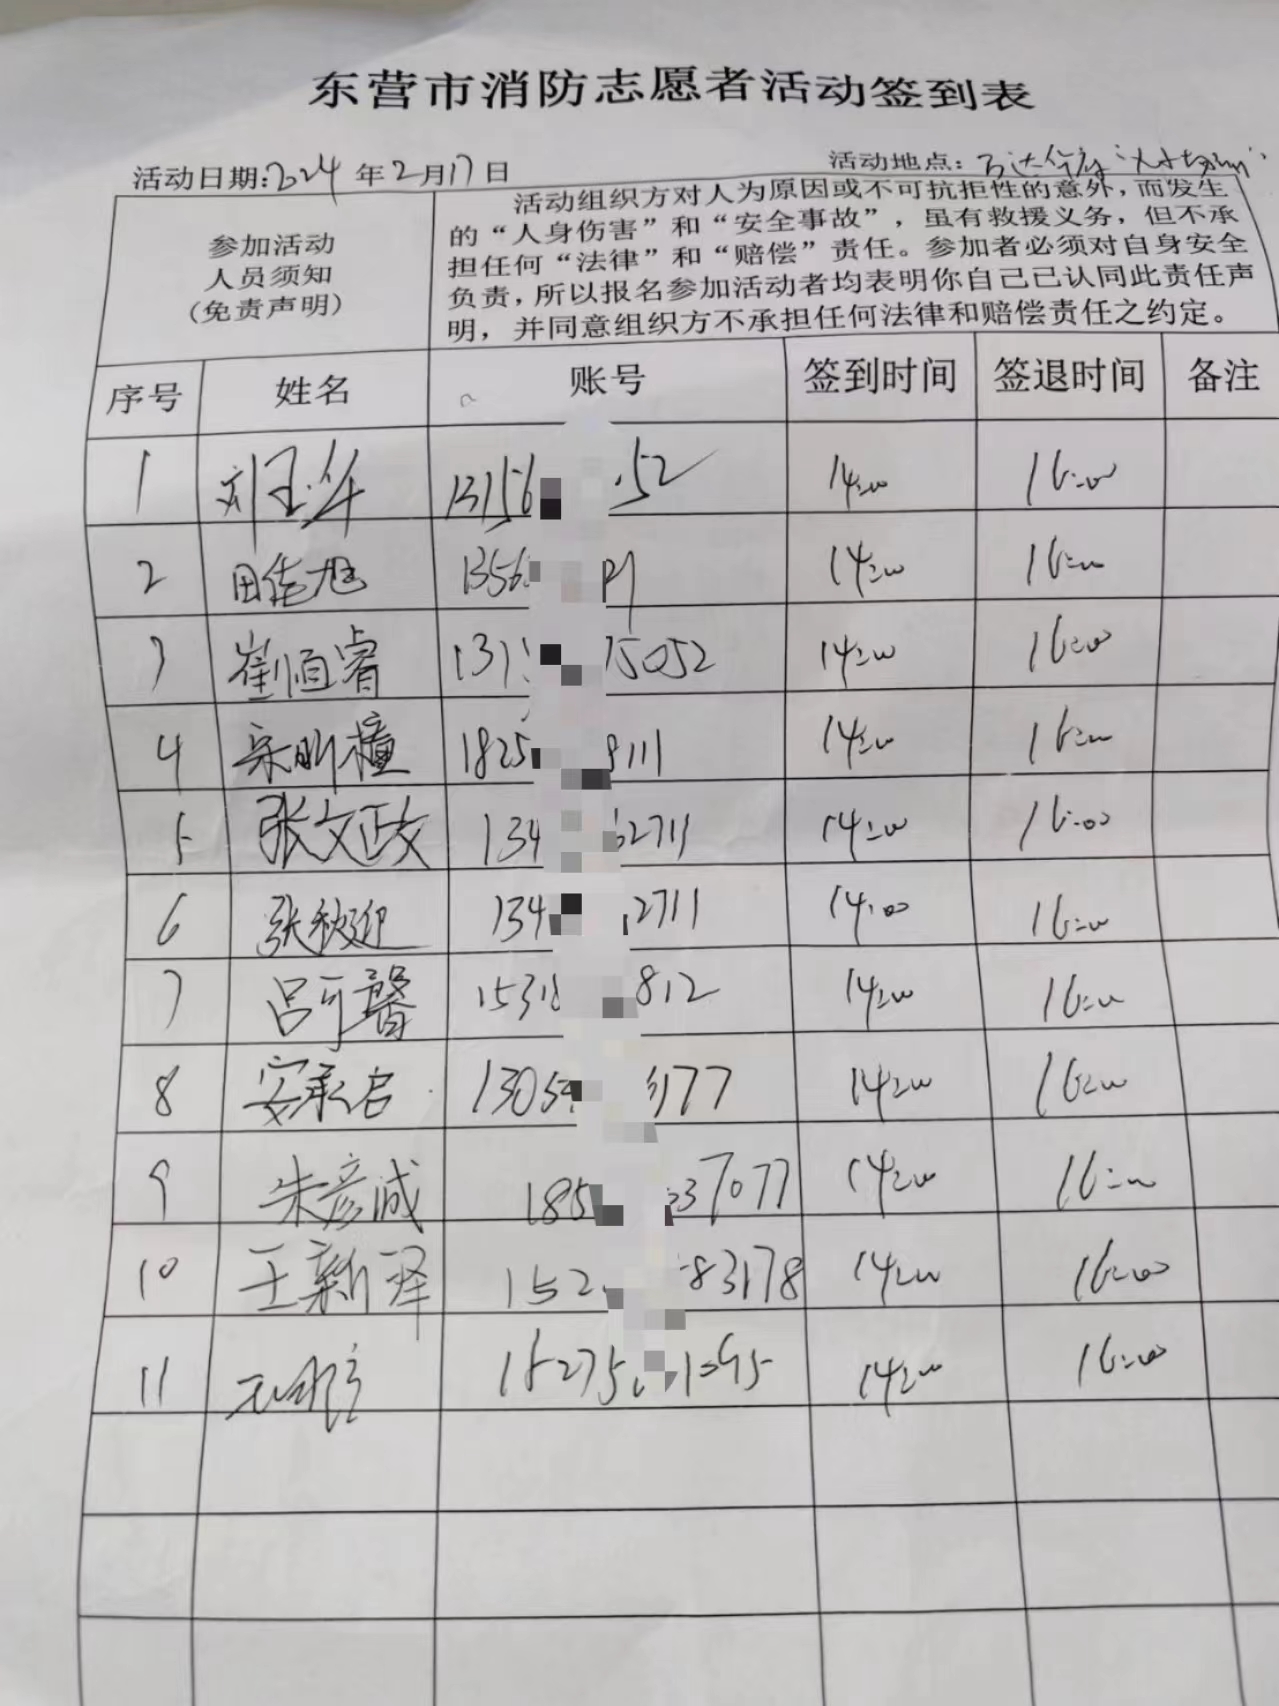 东营市消防志愿者活动签到表
活动日期:2024年2月17日 活动地点:万达华府
参加活动
人员须知
(免责声明)
活动组织方对人为原因或不可抗拒性的意外，而发生
的“人身伤害”和“安全事故”，虽有救援义务，但不承
担任何“法律”和“赔偿”责任。参加者必须对自身安全
负责，所以报名参加活动者均表明你自己已认同此责任声
明，并同意组织方不承担任何法律和赔偿责任之约定。
序号 姓名 账号 签到时间 签退时间 备注
1 刘玉华 13156 52 14:00 16:00
2 田佳旭 1356 14:00 16:00
3 崔恒睿 131 75052 14:00 16:00
4 1825 9111 14:00 16:00
5 张文政 134 62711 14:00 16:00
6 张秋迎 134 2711 14:00 16:00
7 吕可馨 1531 812 14:00 16:00
8 安承启 1305 3177 14:00 16:00
9 朱彦诚 185 37077 14:00 16:00
10 王新译 152 83178 14:00 16:00
11 15275 1395 14:00 16:00